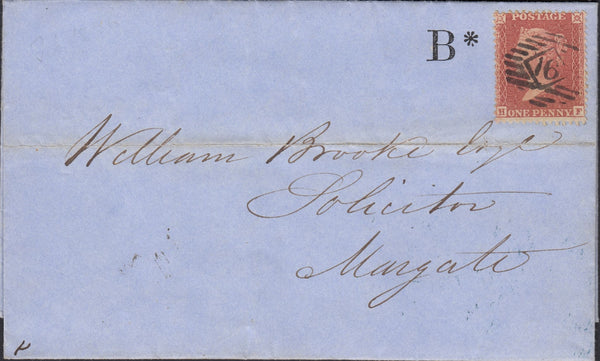 B*
POSTAGE
16
H ONE PENNY F
William Brooke Esqr
Solicitor
Margate